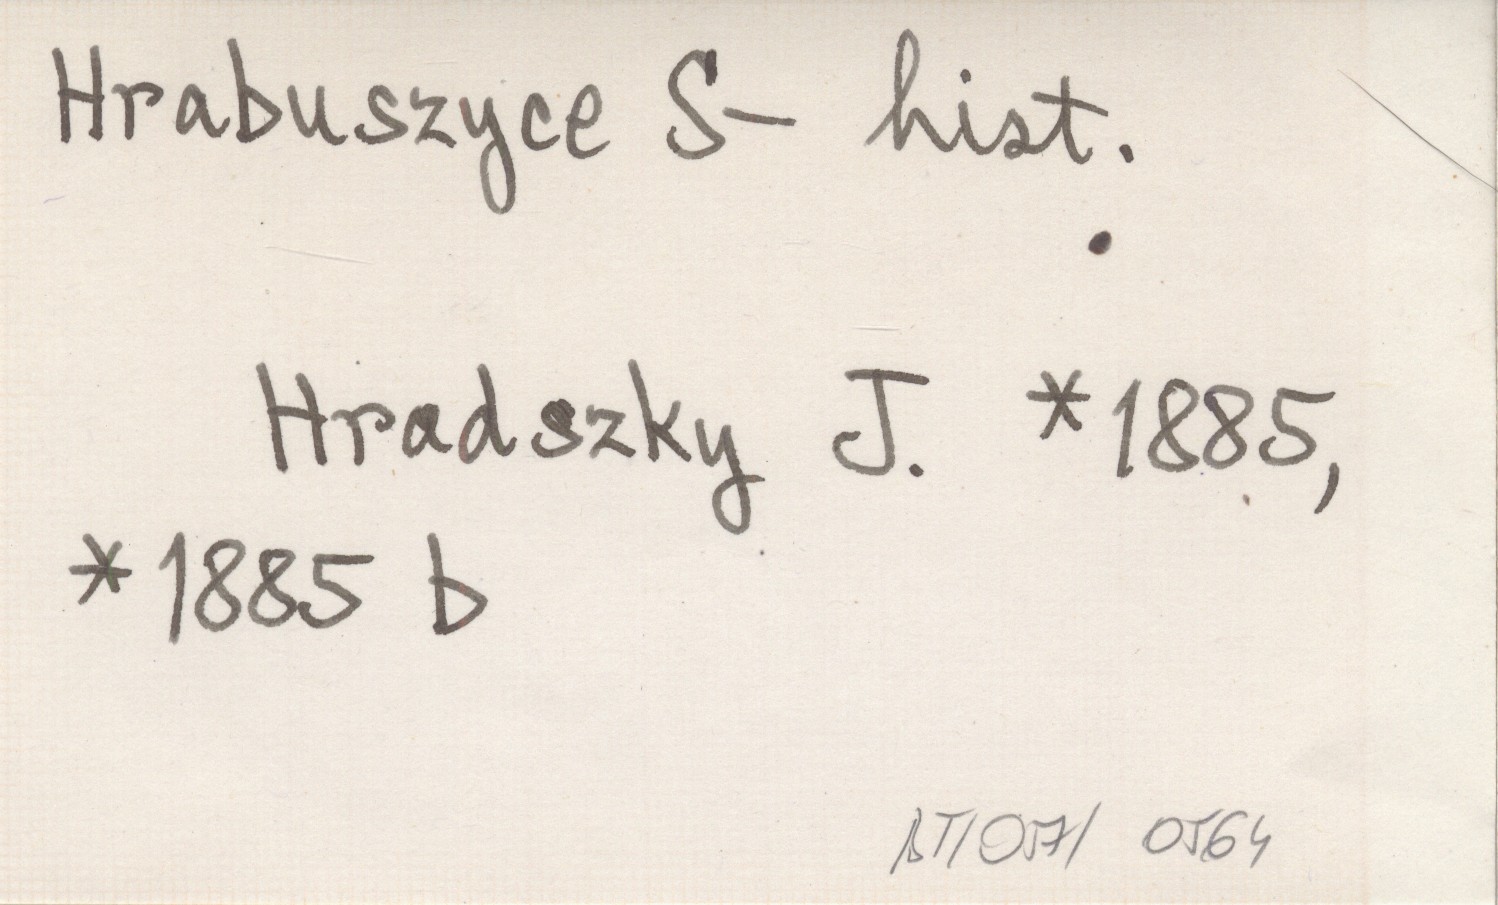 Hrabuszyce S- hist.
Hradszky J. *1885,
*1885 b
BT/057/ 0564